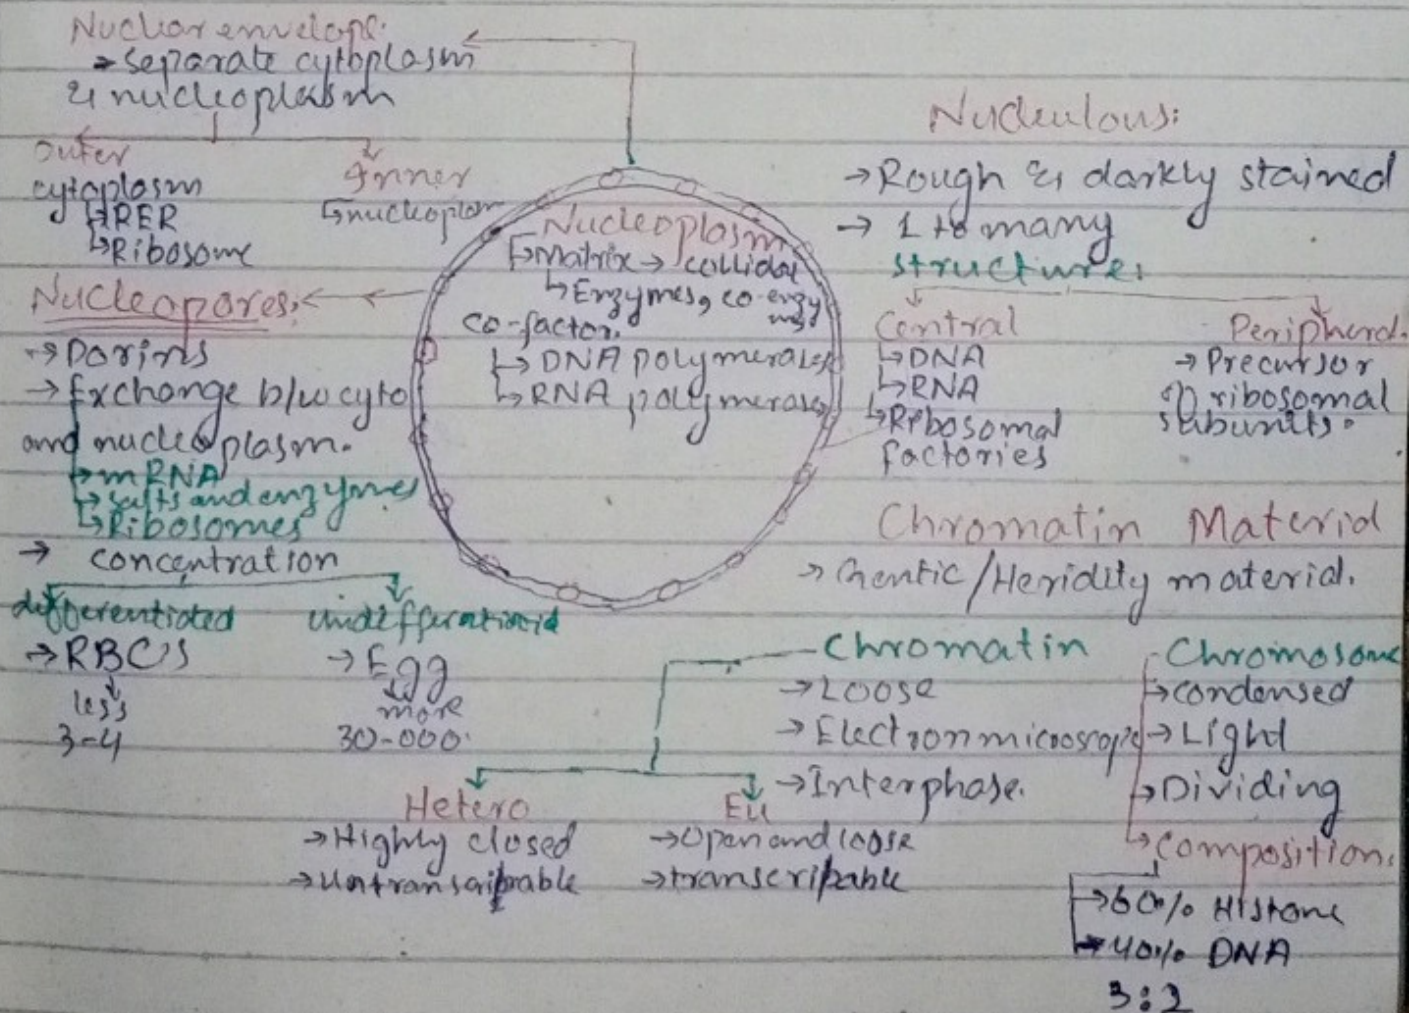 Nuclear envelope:
→ separate cytoplasm
& nucleoplasm
outer
cytoplasm
↳ RER
↳ Ribosome
Inner
↳ nucleoplasm
Nucleopores:
→ Porins
→ Exchange b/w cyto
and nucleoplasm.
→ mRNA
↳ salts and enzymes
↳ Ribosomes
→ concentration
defferentiated
→ RBC's
less
3-4
→ Egg
more
30-000.
Nucleoplasm
↳ Matrix → collidal
↳ Enzymes, co-enzy
mes
co-factor.
↳ DNA polymerases
↳ RNA polymerases
Nuculous:
→ Rough & darkly stained
→ 1 to many
structure:
Central
↳ DNA
↳ RNA
↳ Ribosomal
factories
Peripheral.
→ Precursor
of ribosomal
subunits.
Chromatin Material
→ Gentic/Heridity material.
Chromatin
→ Loose
→ Electronmicroscope
→ Interphase.
Chromosome
→ condensed
→ Light
→ Dividing
↳ composition:
→ 60% Histone
→ 40% DNA
3:2
Hetero
→ Highly closed
→ untranscripable
Eu
→ Open and loose
→ transcripable